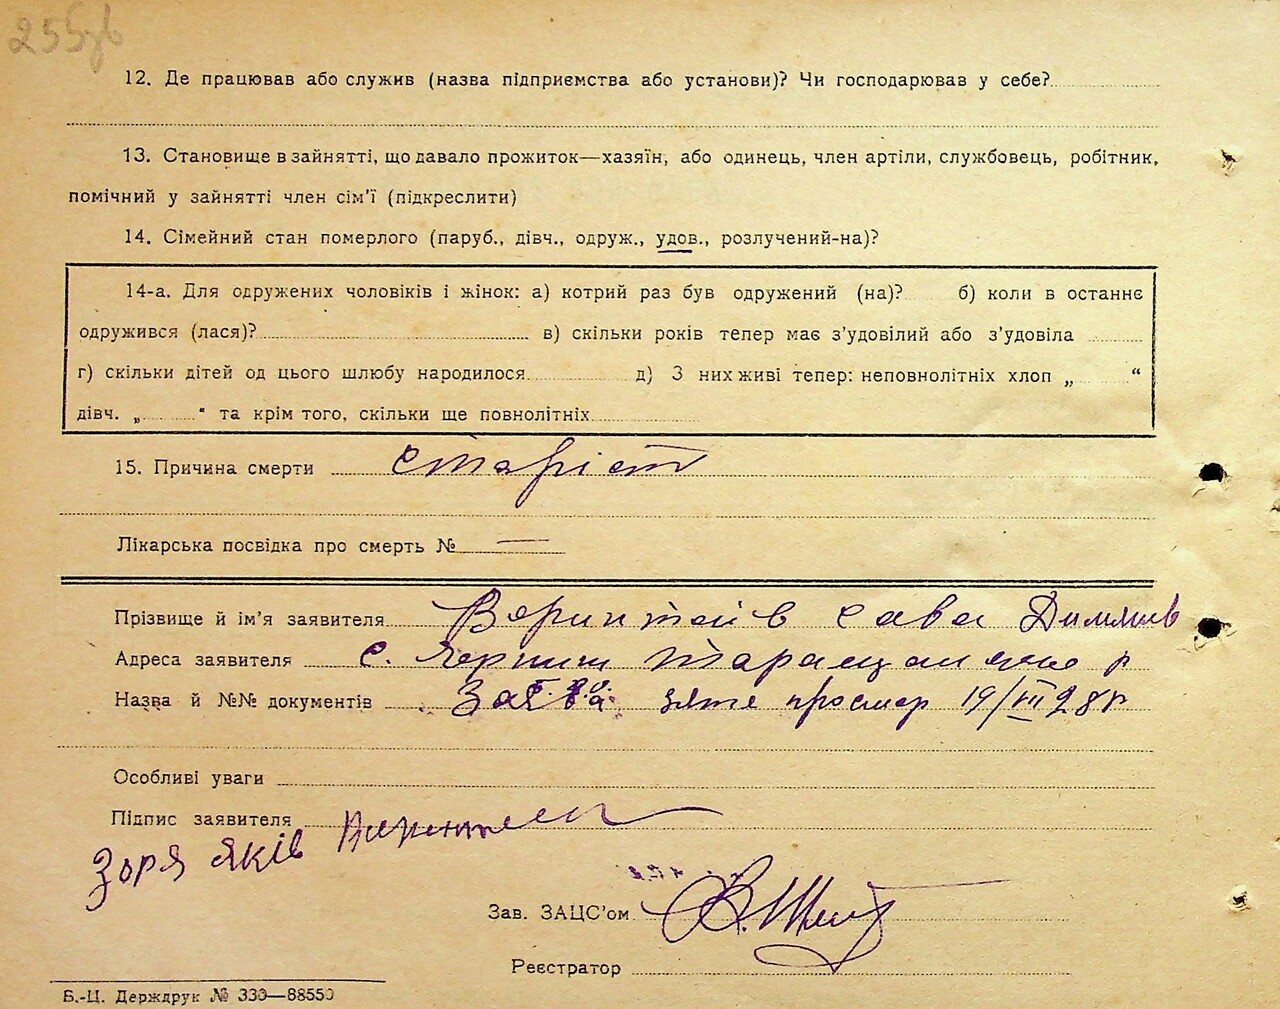 255зв
12. Де працював або служив (назва підприємства або установи)? Чи господарював у себе?
13. Становище в зайнятті, що давало прожиток—хазяїн, або одинець, член артіли, службовець, робітник,
помічний у зайнятті член сім'ї (підкреслити)
14. Сімейний стан померлого (паруб., дівч., одруж., удов., розлучений-на)?
14-а. Для одружених чоловіків і жінок: а) котрий раз був одружений (на)? б) коли в останнє
одружився (лася)? в) скільки років тепер має з'удовілий або з'удовіла
г) скільки дітей од цього шлюбу народилося д) З них живі тепер: неповнолітніх хлоп „ “
дівч. „ “ та крім того, скільки ще повнолітніх
15. Причина смерти старіст
Лікарська посвідка про смерть № —
Прізвище й ім'я заявителя Сава
Адреса заявителя с.
Назва й №№ документів 19/VII 28р
Особливі уваги
Підпис заявителя
Зоря Яків
Зав. ЗАЦС'ом
Реєстратор
Б.-Ц. Держдрук № 330—88550